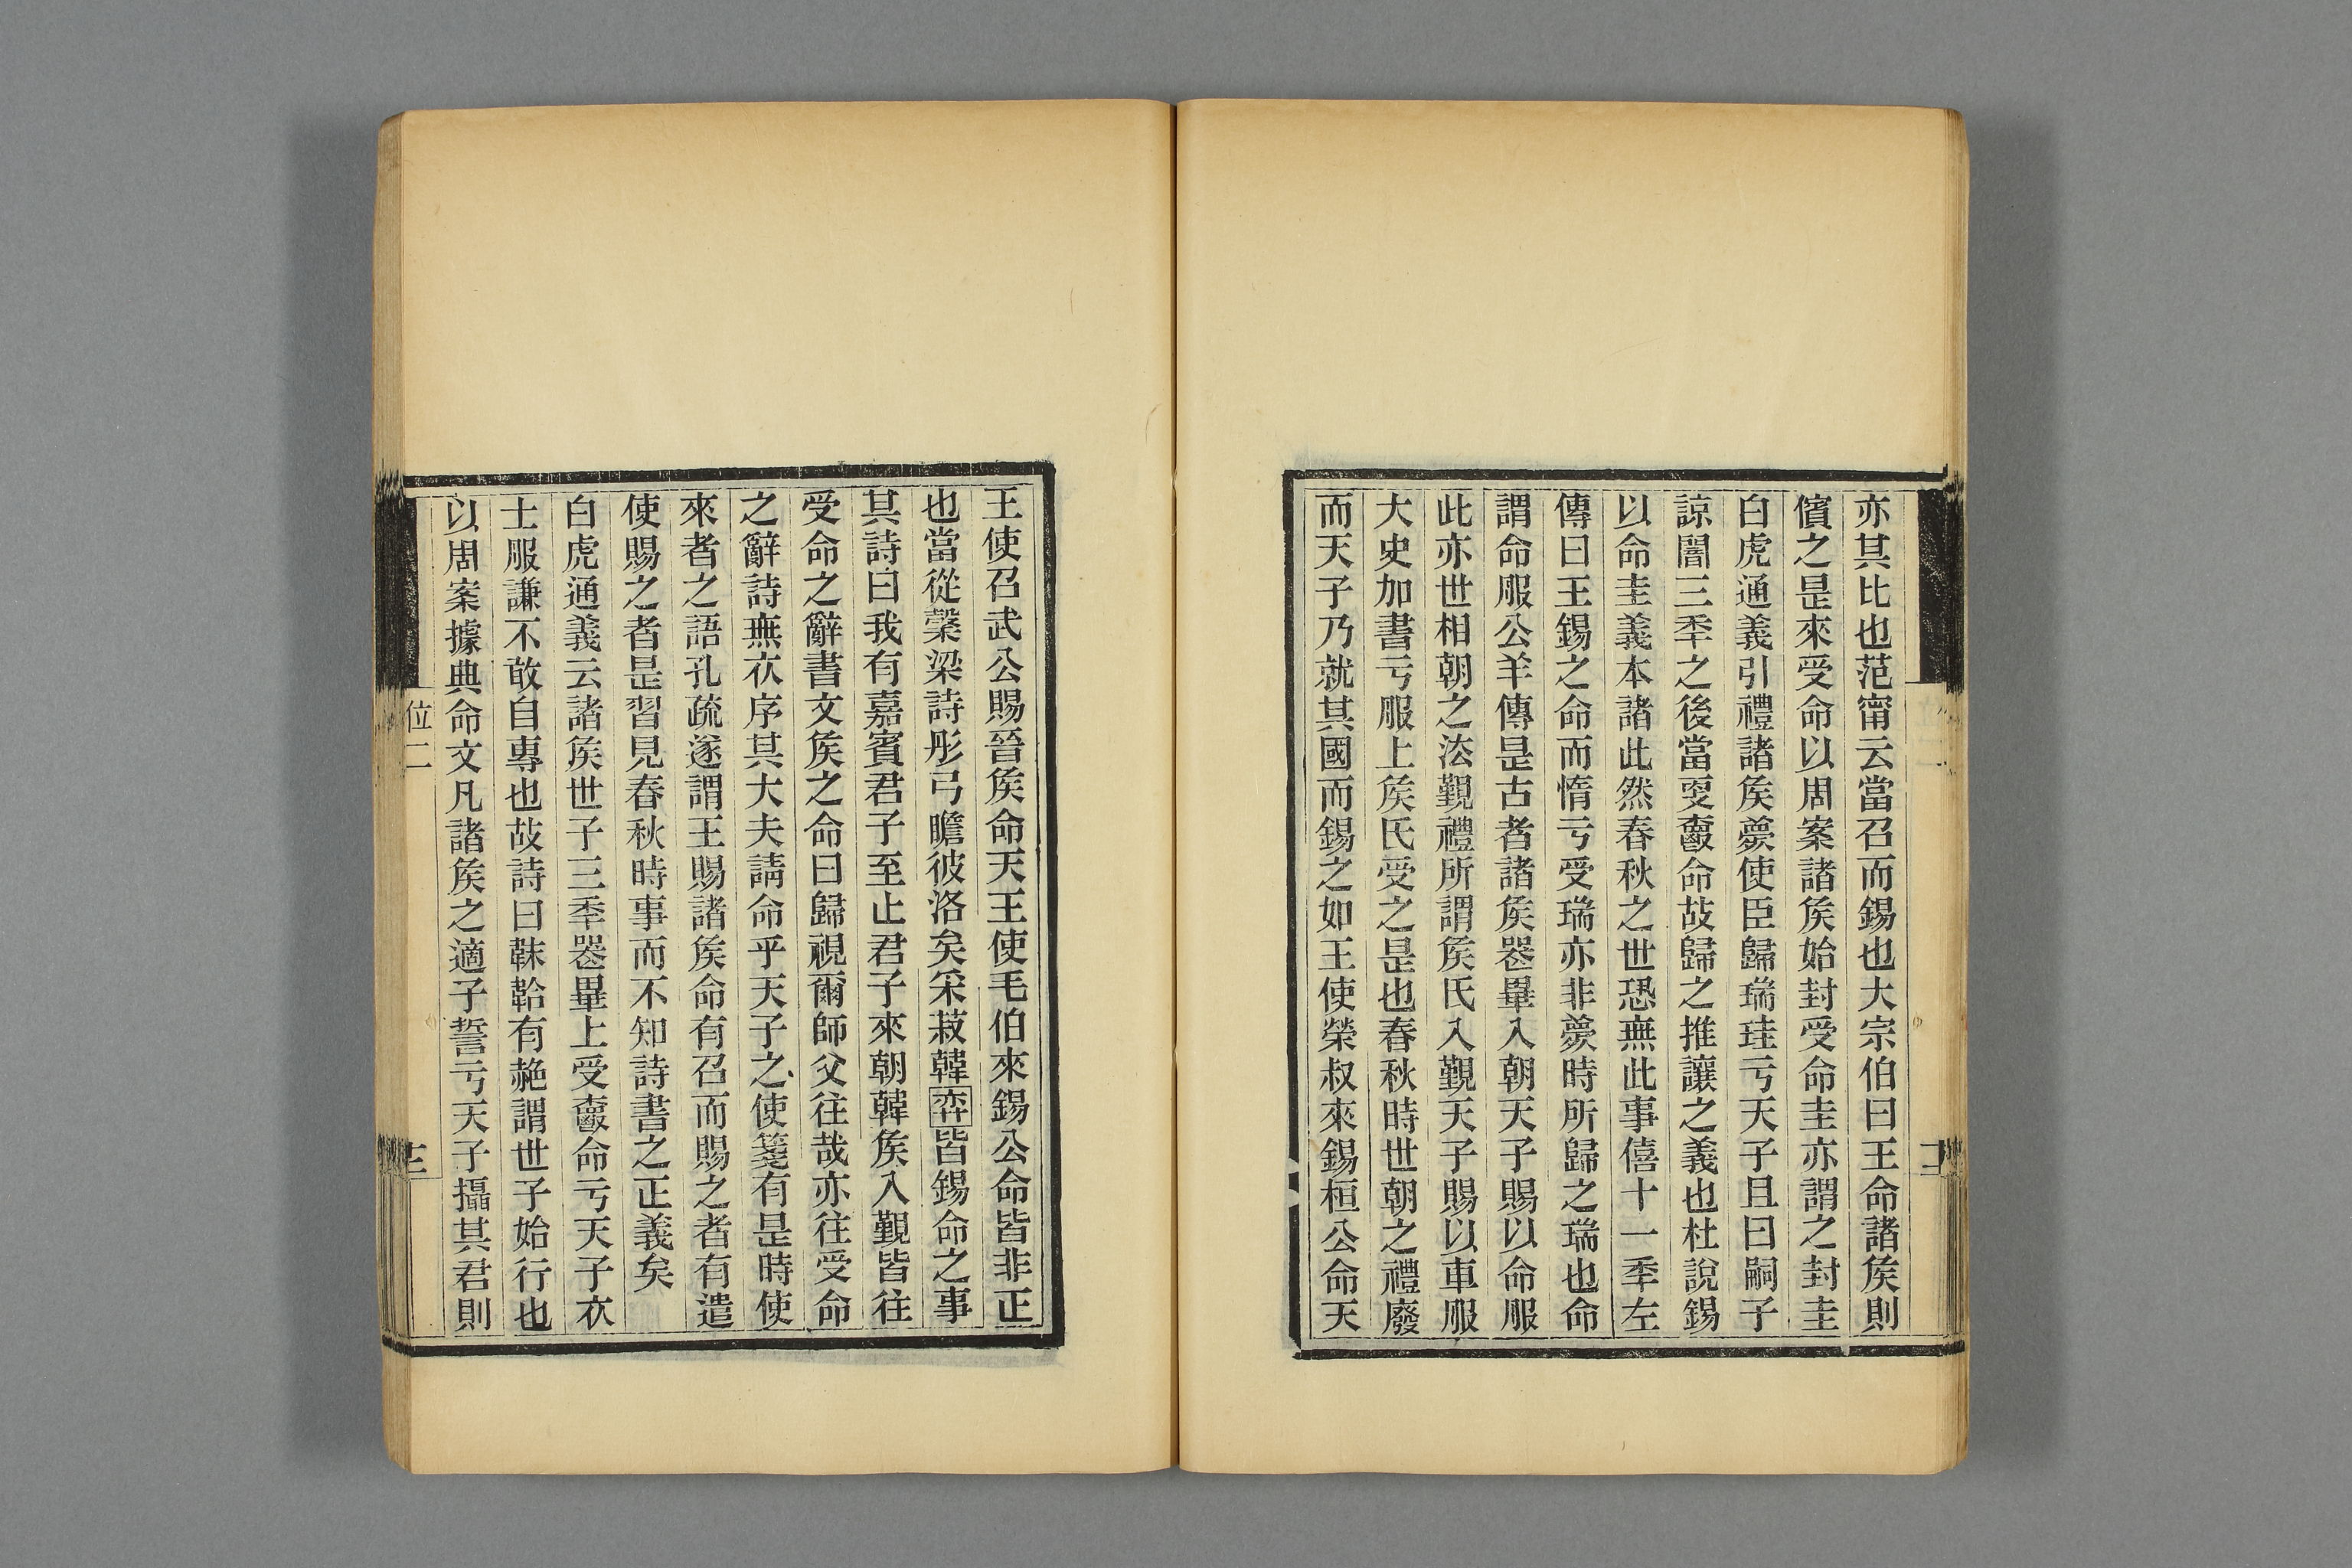 亦其比也范甯云當召而錫也大宗伯曰王命諸矦則
儐之是來受命以周案諸矦始封受命圭亦謂之封圭
白虎通義引禮諸矦薨使臣歸瑞珪亏天子且曰嗣子
諒闇三秊之後當㪅爵命故歸之推讓之義也杜說錫
以命圭義本諸此然春秋之世恐無此事僖十一秊左
傳曰王錫之命而惰亏受瑞亦非薨時所歸之瑞也命
謂命服公羊傳是古者諸矦喪畢入朝天子賜以命服
此亦世相朝之法覲禮所謂矦氏入覲天子賜以車服
大史加書亏服上矦氏受之是也春秋時世朝之禮廢
而天子乃就其國而錫之如王使榮叔來錫桓公命天
王使召武公賜晉矦命天王使毛伯來錫公命皆非正
也當從糳梁詩彤弓瞻彼洛矣采菽韓弈皆錫命之事
其詩曰我有嘉賓君子至止君子來朝韓矦入覲皆往
受命之辭書文矦之命曰歸視爾師父往哉亦往受命
之辭詩無衣序其大夫請命乎天子之使箋有是時使
來者之語孔疏遂謂王賜諸矦命有召而賜之者有遣
使賜之者是習見春秋時事而不知詩書之正義矣
白虎通義云諸矦世子三秊喪畢上受爵命亏天子衣
士服謙不敢自專也故詩曰韎韐有赩謂世子始行也
以周案據典命文凡諸矦之適子誓亏天子攝其君則
位二